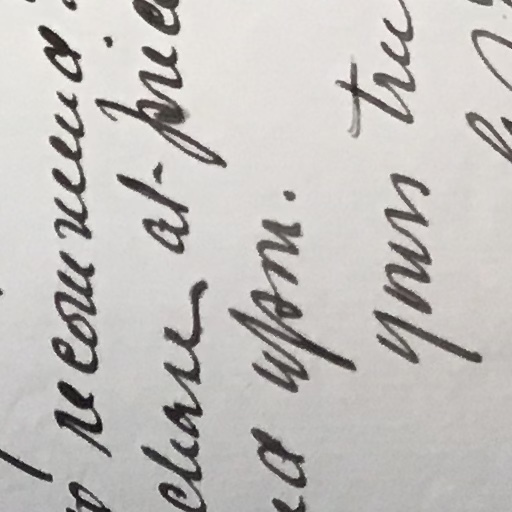 to recommend
chase at price
ed upon.
yours tru